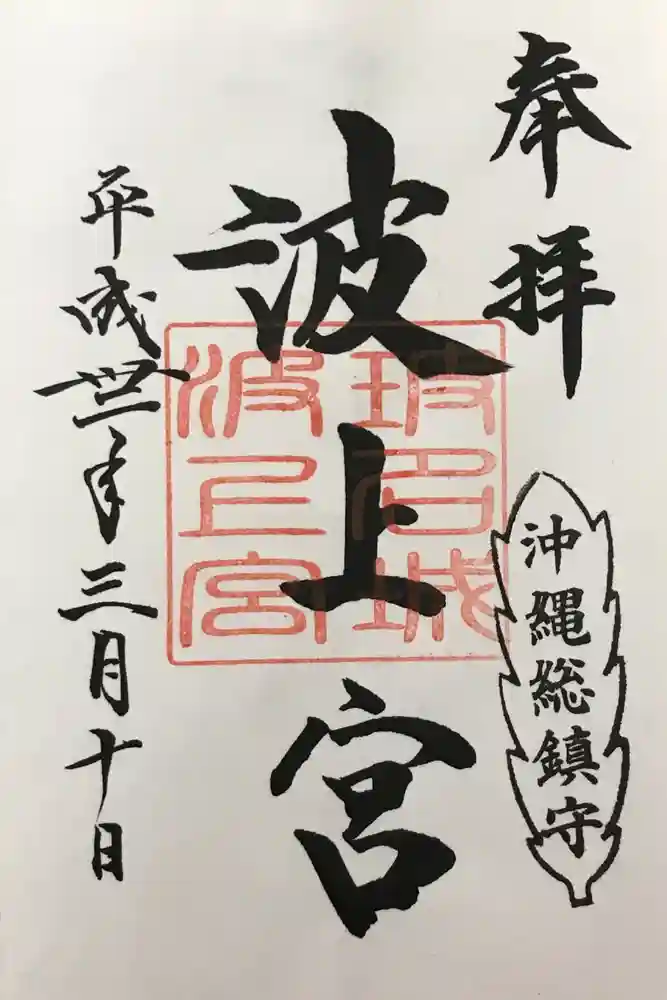 奉拝
沖縄総鎮守
波上宮
玻名城
波上宮
平成丗一年三月十日